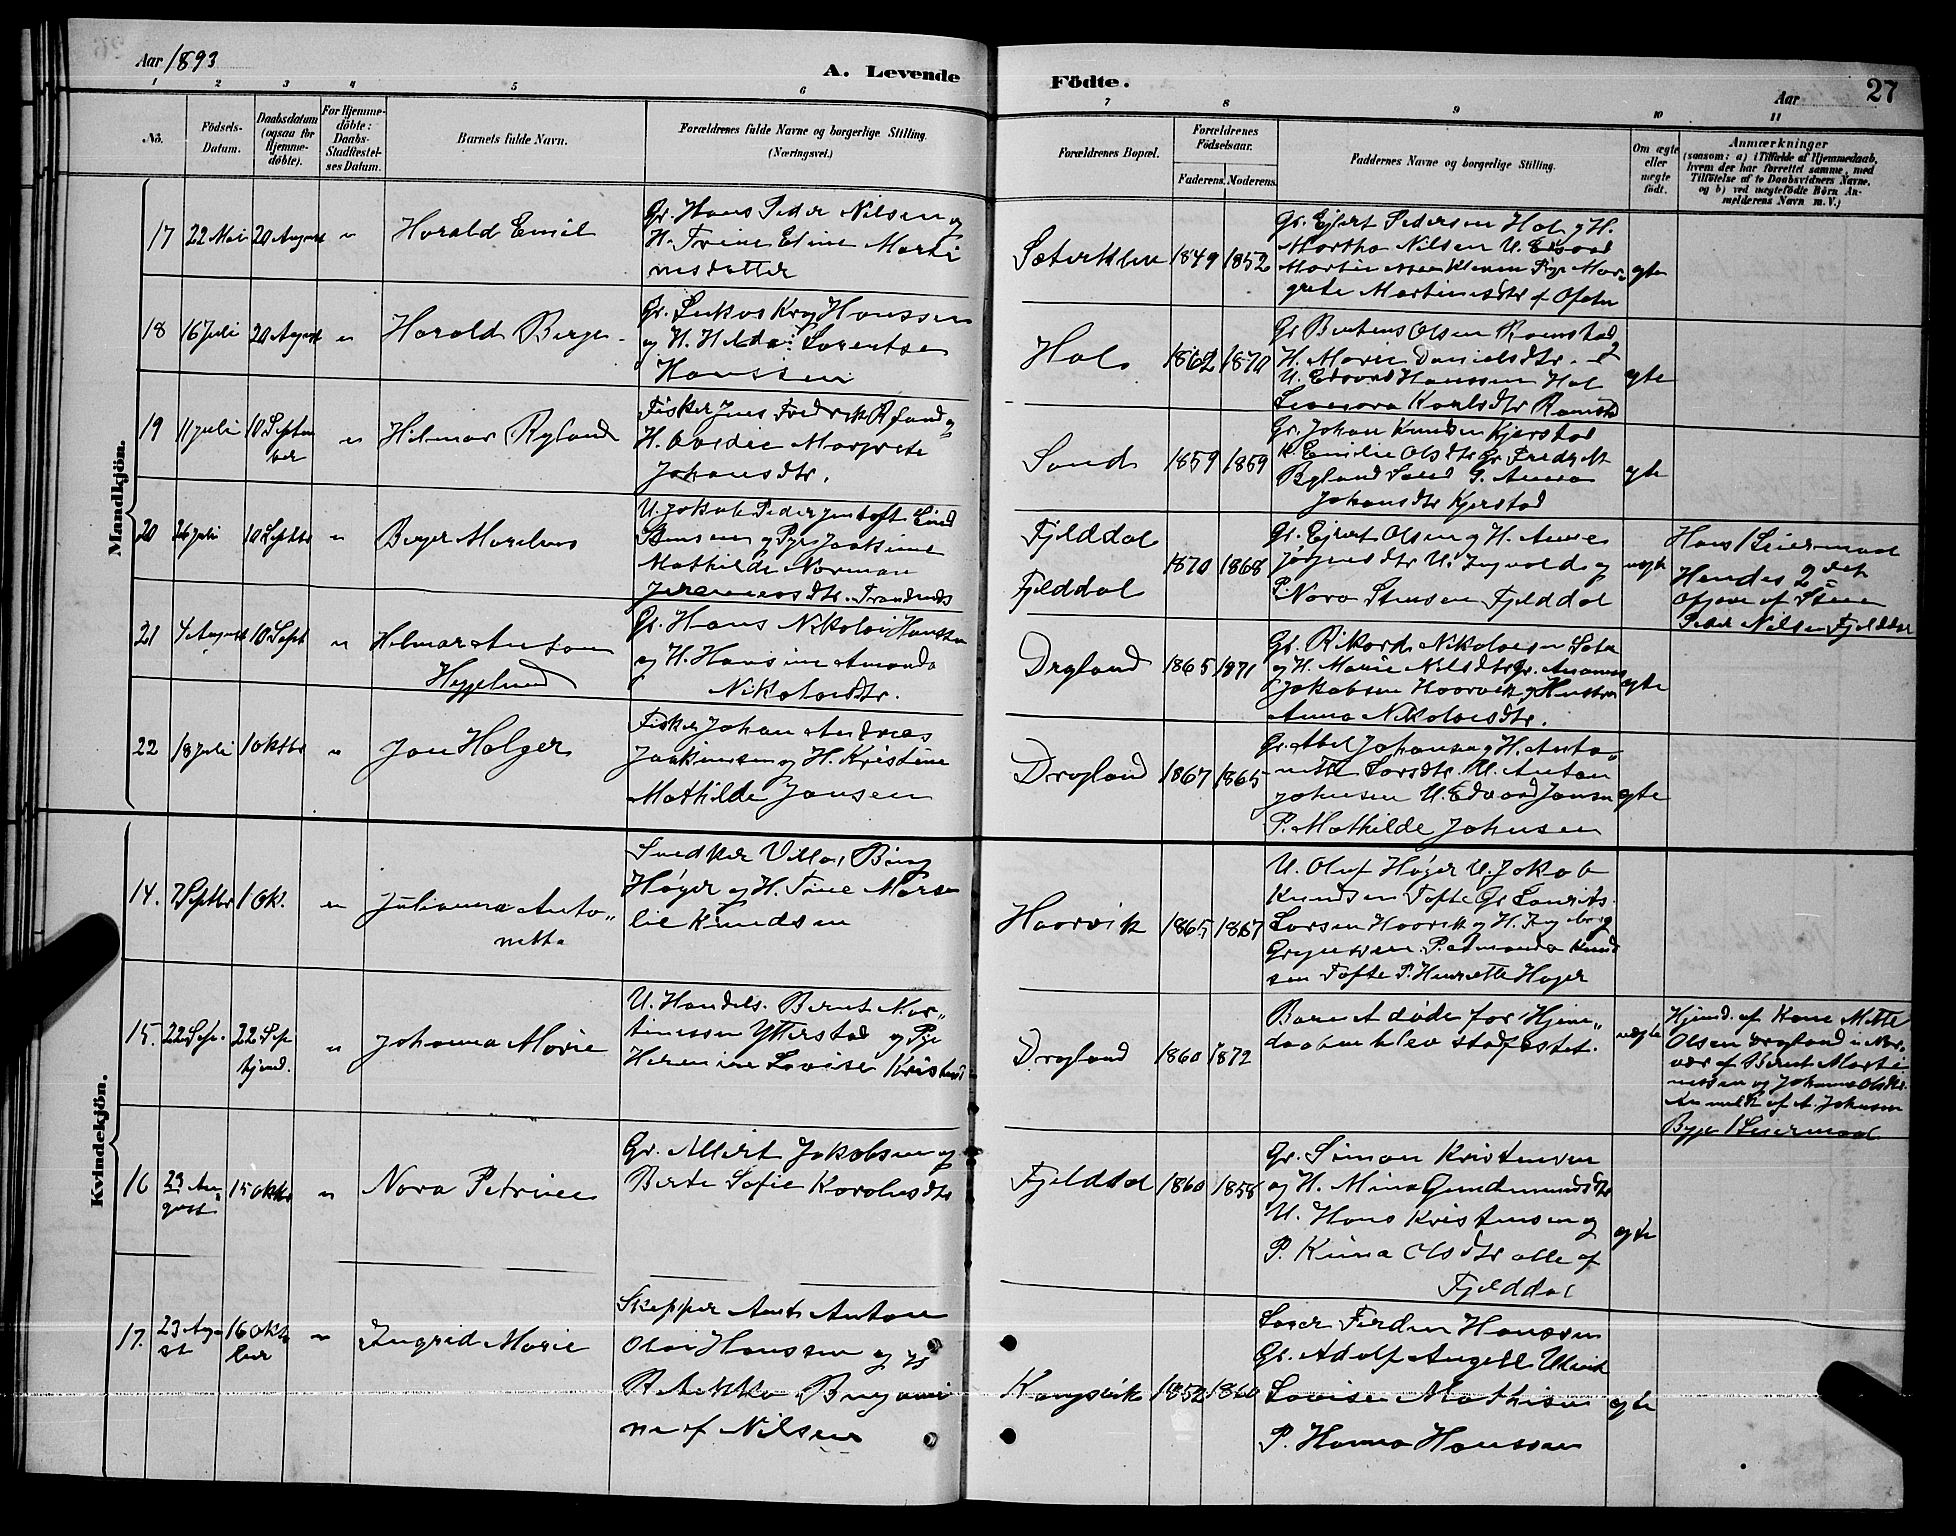 Aar 1893
A. Levende
Födte.
Aar
27
1 2 3 4 5 6 7 8 9 10 11
No.
Födsels-
Datum.
Daabsdatum
(ogsaa for
Hjemme-
döbte).
For Hjemme-
döbte:
Daabs-
Stadfæstel-
ses Datum.
Barnets fulde Navn.
Forældrenes fulde Navne og borgerlige Stilling.
(Næringsvei.)
Forældrenes Bopæl.
Forældrenes
Födselsaar.
Faderens. Moderens.
Faddernes Navne og borgerlige Stilling.
Om ægte
eller
uægte
födt.
Anmærkninger
(saasom: a) i Tilfælde af Hjemmedaab,
hvem der har forrettet samme, med
Tilföielse af to Daabsvidners Navne,
og b) ved uægtefödte Börn An-
melderens Navn m. V.)
Mandkjön.
17 22 Mai 20 August " Harald Emil
Gr. Hans Peder Nilsen og
H. Trine Eline Marti
nusdatter
1849 1852
Gr. Ejert Pedersen Hol og H.
Martha Nilsen U.
grete Martinusdtr af Ofoten
ægte
18 16 Juli 20 August " Harald Birger
Gr. Lukas Kry Hanssen
og H. Hilda Lorentse
Hanssen
Hol 1862 1870
Gr Olsen Ramstad
H. Maren Danielsdtr.
U. Edvard Hanssen Hol
Karlsdtr Ramstad
ægte
19 11 juli 10 Septem
ber " Hilmar Ryland
Fisker Jens Fredrik Ryland og
H. Margrete
Johansdtr.
Sand 1859 1859
Gr. Johan Knudsen Kjerstad
K Emilie Olsdtr Gr Fredrik
Ryland Sand G. Anna
Johansdtr Kjerstad
ægte
20 26 juli 10 Septbr " Birger Marelius
U. Jakob Peder Jentoft
Stensen og Pige Joakime
Mathilde Norman
Jeremiasdtr. Trandnes
Fjelddal
Fjelddal
1870 1868
Gr. Ejert Olsen og H. Anne
Jørgensdtr U. Ingvald og
P. Nora Stensen Fjelddal
uægte
Hans 1 Leiermaal
Hendes 2det
Opgave af Stene
Peder Nilsen Fjelddal
21 4 August 10 Sept " Helmar Anton
Heggelund
Gr. Hans Nikolai Hanssen
og H. Hansine Amanda
Nikolaisdtr.
Drogland 1865 1871
Gr. Rikard Nikolaisen
og H. Marie Nilsdtr Gr.
Jakobsen Haarvik og Hustru
Anna Nikolaisdtr.
ægte
22 18 juli 1 oktbr " Jan Holger
Fisker Johan Andreas
Joakimsen og H. Kristine
Mathilde Jansen
Drogland 1867 1865
Gr. Abel Johansen og H. Anto-
nette Larsdtr. U. Anton
Johnsen U. Edvard Jansen
P. Mathilde Johnsen
ægte
Kvindekjön.
14. 7 Septbr 1 Ok. " Julianna Anto-
nette
Snedker Villas Bing
Høyer og H. Tine
lie Knudsen
Haarvik 1865 1867
U. Oluf Høyer U. Jakob
Knudsen Tofte Gr Laurits
Larsen Haarvik og H. Ingeborg
P. Amanda Knud
sen Tofte P. Henriette Høyer
15. 22 Sep. 22 Sep
hjemd. " Johanna Marie
U. Handels. Bernt Mar-
tinussen Ytterstad og Pige
Hermine Lovise Kristens
Drogland 1860 1872
Barnet døde før Hjem-
daaben blev stadfæstet.
uægte
Hjemd. af Kone Mette
Olsen Drogland i Nær-
vær af Bernt Marti
nussen og Johanna Olsdtr.
Anmeldt af A. Johnsen
Begge 1 Leiermaal
16 29 Au-
gust 15 oktbr " Nora Petrine
Gr. Albert Jakobsen og
Berte Sofie Karolisdtr
Fjelddal 1860 1858
Gr. Simon Kristensen
og H. Mina Gundmundsdtr
U. Hans Kristensen og
P. Olsdtr alle af
Fjelddal
ægte
17. 23 Aug
st 16 Okto
ber " Ingrid Marie
Skipper Anton
Olai Hanssen og H
Rebekka Benjami
ne f Nilsen
Kongsvik 1852 1860
Ferdin Hanssen
Gr. Adolf Angell
Lovise Mathisen
P. Hanna Hanssen
ægte